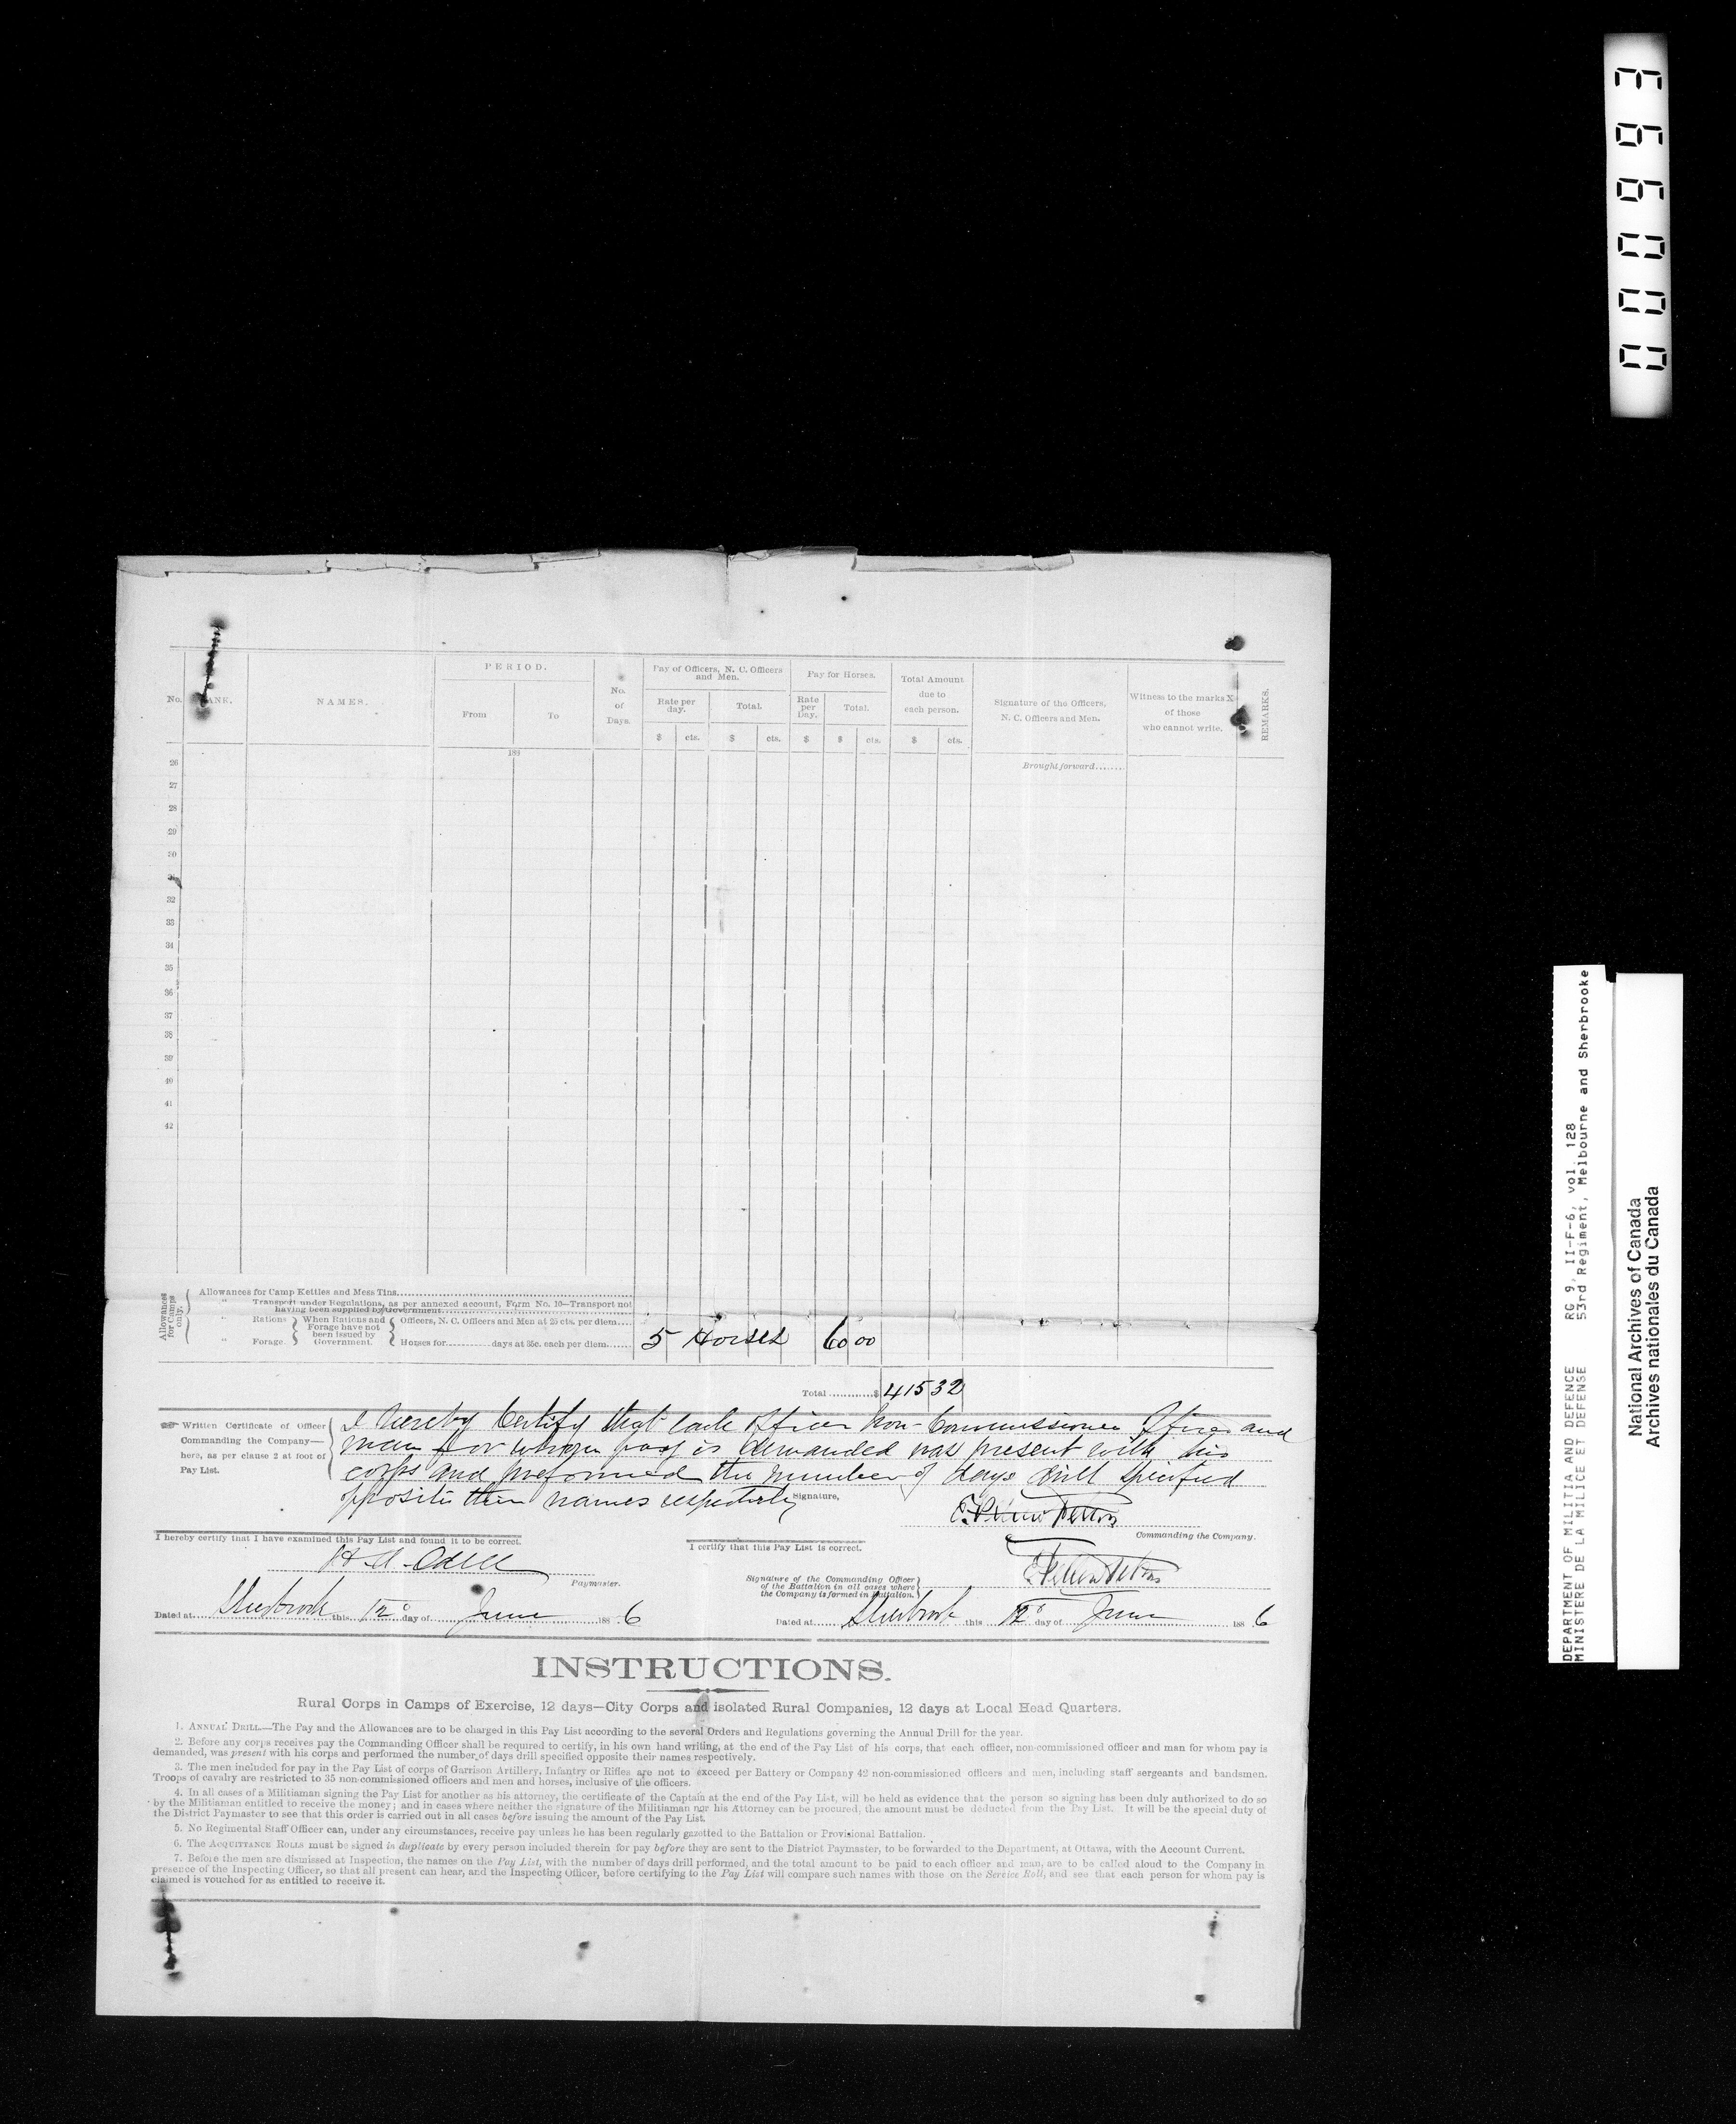 No.
ANK.
NAMES.
PERIOD.
From
To
No. of Days.
Pay of Officers, N. C. Officers and Men.
Rate per day.
Total.
$ cts. $ cts.
Pay for Horses.
Rate per Day.
Total.
$ $ cts.
Total Amount due to each person.
$ cts.
Signature of the Officers, N. C. Officers and Men.
Witness to the marks X of those who cannot write.
REMARKS.
188
Brought forward.......
26
27
28
29
30
32
33
34
35
36
37
38
39
40
41
42
Allowances for Camps only.
Allowances for Camp Kettles and Mess Tins
" Transport under Regulations, as per annexed account, Form No. 10—Transport not
having been supplied by Government
" Rations
" Forage.
When Rations and Forage have not been issued by Government.
Officers, N. C. Officers and Men at 25 cts. per diem....
Horses for..........days at 35c. each per diem......
5 Horses 60 00
Total ............$ 415 32
Written Certificate of Officer
Commanding the Company—
here, as per clause 2 at foot of
Pay List.
I hereby Certify that each officer Non-Commissioner Officer and
man for whom pay is demanded was present with his
corps and preformed the number of days drill specified
opposite their names respectively
Signature,
Commanding the Company.
I hereby certify that I have examined this Pay List and found it to be correct.
H. A. Odell
Paymaster.
Dated at Sherbrook this 12 day of June 1886
I certify that this Pay List is correct.
Signature of the Commanding Officer
of the Battalion in all cases where
the Company is formed in Battalion.
Dated at Sherbrook this 12 day of June 1886
INSTRUCTIONS.
Rural Corps in Camps of Exercise, 12 days—City Corps and isolated Rural Companies, 12 days at Local Head Quarters.
1. ANNUAL DRILL.—The Pay and the Allowances are to be charged in this Pay List according to the several Orders and Regulations governing the Annual Drill for the year.
2. Before any corps receives pay the Commanding Officer shall be required to certify, in his own hand writing, at the end of the Pay List of his corps, that each officer, non-commissioned officer and man for whom pay is
demanded, was present with his corps and performed the number of days drill specified opposite their names respectively.
3. The men included for pay in the Pay List of corps of Garrison Artillery, Infantry or Rifles are not to exceed per Battery or Company 42 non-commissioned officers and men, including staff sergeants and bandsmen.
Troops of cavalry are restricted to 35 non-commissioned officers and men and horses, inclusive of the officers.
4. In all cases of a Militiaman signing the Pay List for another as his attorney, the certificate of the Captain at the end of the Pay List, will be held as evidence that the person so signing has been duly authorized to do so
by the Militiaman entitled to receive the money; and in cases where neither the signature of the Militiaman nor his Attorney can be procured, the amount must be deducted from the Pay List. It will be the special duty of
the District Paymaster to see that this order is carried out in all cases before issuing the amount of the Pay List.
5. No Regimental Staff Officer can, under any circumstances, receive pay unless he has been regularly gazetted to the Battalion or Provisional Battalion.
6. The ACQUITTANCE ROLLS must be signed in duplicate by every person included therein for pay before they are sent to the District Paymaster, to be forwarded to the Department, at Ottawa, with the Account Current.
7. Before the men are dismissed at Inspection, the names on the Pay List, with the number of days drill performed, and the total amount to be paid to each officer and man, are to be called aloud to the Company in
presence of the Inspecting Officer, so that all present can hear, and the Inspecting Officer, before certifying to the Pay List will compare such names with those on the Service Roll, and see that each person for whom pay is
claimed is vouched for as entitled to receive it.
DEPARTMENT OF MILITIA AND DEFENCE RG 9, II-F-6, vol. 128
MINISTERE DE LA MILICE ET DEFENSE 53rd Regiment, Melbourne and Sherbrooke
National Archives of Canada
Archives nationales du Canada